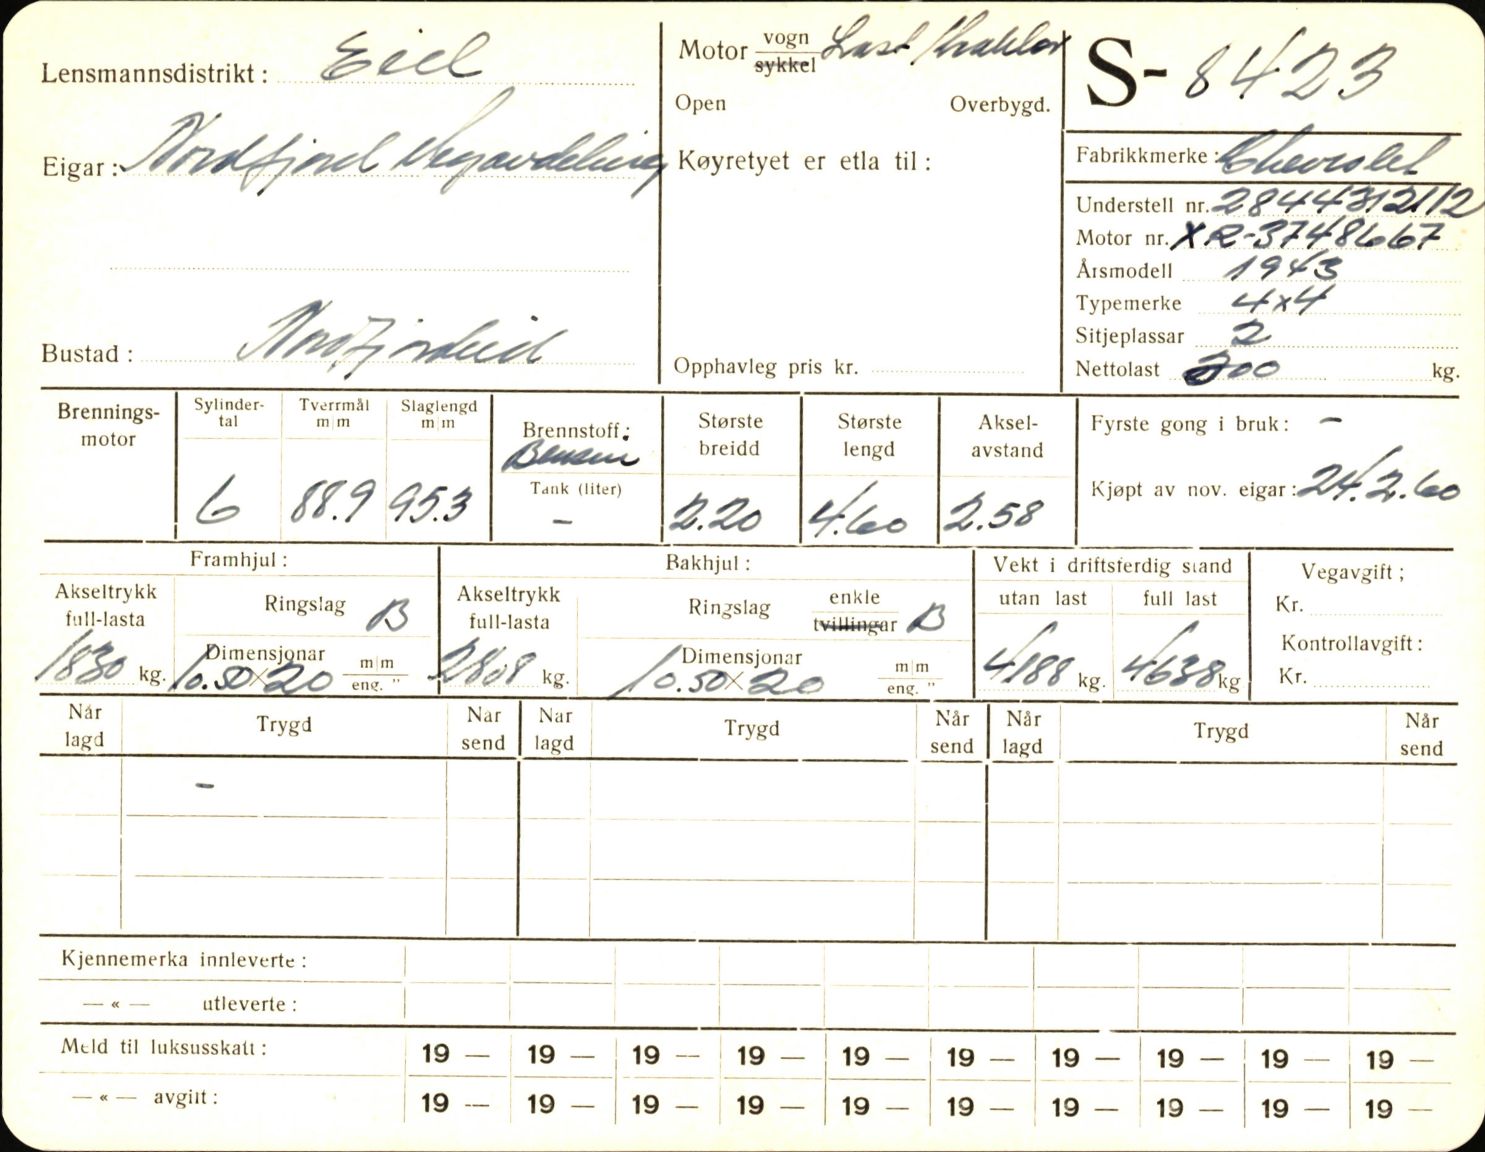 Lensmannsdistrikt: Eid
Eigar: Nordfjord Vegavdeling
Bustad: Nordfjordeid
Motor vogn sykkel Last/traktor
Open Overbygd.
Køyretyet er etla til:
Opphavleg pris kr.
S- 8423
Fabrikkmerke: Chevrolet
Understell nr. 2844312112
Motor nr. XR-3748667
Årsmodell 1943
Typemerke 4x4
Sitjeplassar 2
Nettolast 300 kg.
Brennings-
motor
Sylinder-
tal
6
Tverrmål
m|m
88.9
Slaglengd
m|m
95.3
Brennstoff:
Bensin
Tank (liter)
-
Største
breidd
2.20
Største
lengd
4.60
Aksel-
avstand
2.58
Fyrste gong i bruk: -
Kjøpt av nov. eigar: 24.2.60
Framhjul:
Akseltrykk
full-lasta
1830 kg.
Ringslag B
Dimensjonar m|m
10.50x20 eng. "
Bakhjul:
Akseltrykk
full-lasta
2808 kg.
Ringslag enkle tvillingar B
Dimensjonar m|m
10.50x20 eng. "
Vekt i driftsferdig stand
utan last full last
4188 kg. 4638 kg
Vegavgift;
Kr.
Kontrollavgift:
Kr.
Når lagd Trygd Når send Når lagd Trygd Når send Når lagd Trygd Når send
-
Kjennemerka innleverte:
— « — utleverte:
Meld til luksusskatt: 19 — 19 — 19 — 19 — 19 — 19 — 19 — 19 — 19 — 19 —
— « — avgift: 19 — 19 — 19 — 19 — 19 — 19 — 19 — 19 — 19 — 19 —